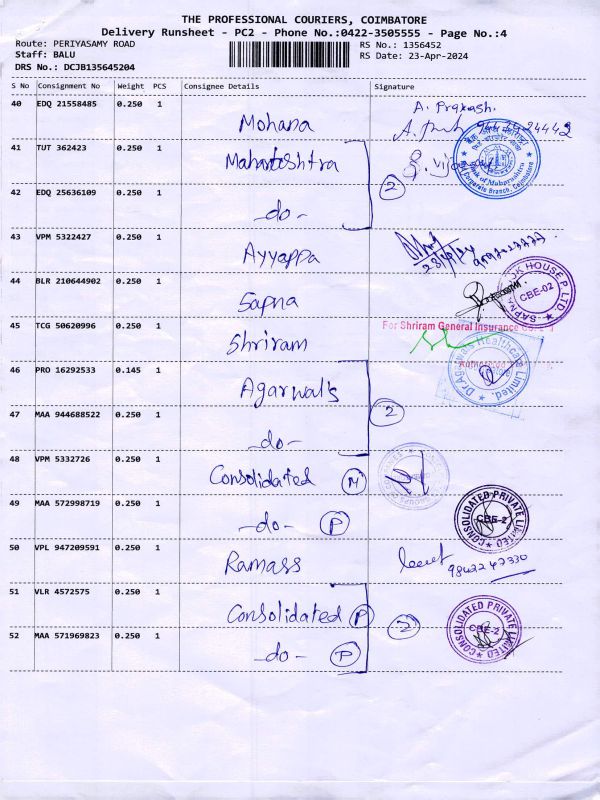 THE PROFESSIONAL COURIERS, COIMBATORE
Delivery Runsheet - PC2 - Phone No.:0422-3505555 - Page No.:4
Route: PERIYASAMY ROAD
Staff: BALU
DRS No.: DCJB135645204
RS No.: 1356452
RS Date: 23-Apr-2024
S No Consignment No Weight PCS Consignee Details Signature
40 EDQ 21558485 0.250 1 Mohana A. Prakash.
41 TUT 362423 0.250 1 Maharashtra
Bank of Maharashtra
Corporate Branch, Coimbatore
42 EDQ 25636109 0.250 1 -do- 2
43 VPM 5322427 0.250 1 Ayyappa
44 BLR 210644902 0.250 1 Sapna
SAPNA BOOK HOUSE P LTD. CBE-02
45 TCG 50620996 0.250 1 Shriram
For Shriram General Insurance
46 PRO 16292533 0.145 1 Agarwal's
Dr.Agarwal's Healthcare Limited.
47 MAA 944688522 0.250 1 -do- 2
48 VPM 5332726 0.250 1 Consolidated M
49 MAA 572998719 0.250 1 -do- P
CONSOLIDATED PRIVATE LIMITED CBE-2
50 VPL 947209591 0.250 1 Ramass
9842247330
51 VLR 4572575 0.250 1 Consolidated P 2
CONSOLIDATED PRIVATE LIMITED CBE-2
52 MAA 571969823 0.250 1 -do- P